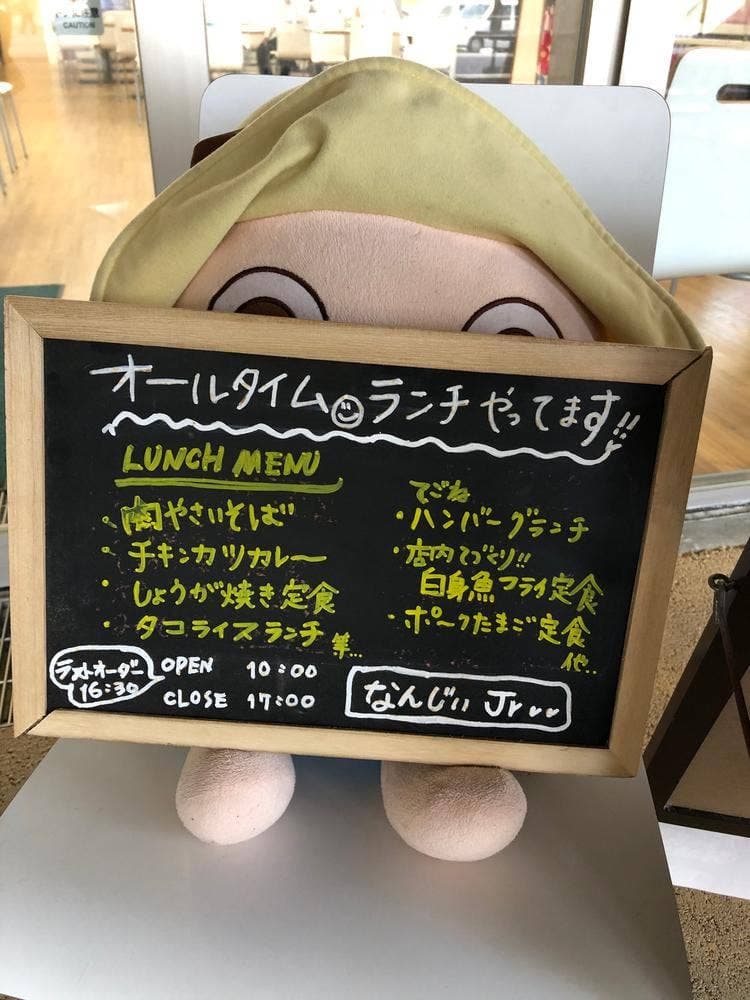 CAUTION
オールタイム ランチ やってます!!
LUNCH MENU
・肉やさいそば
・チキンカツカレー
・しょうが焼き定食
・タコライスランチ 等...
てごね
・ハンバーグランチ
・店内てづくり!!
白身魚フライ定食
・ポークたまご定食
他..
ラストオーダー
16:30
OPEN 10:00
CLOSE 17:00
なんじぃ Jr